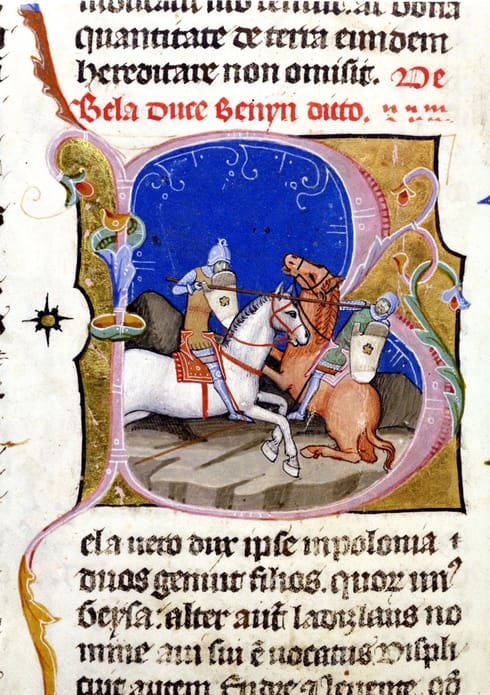 tenuit. ac bona
quantitate de terra eiusdem
hereditare non omisit. De
Bela Duce Benyn dicto.
Bela uero dux ipse in polonia ⁊
duos genuit filios. quor unꝰ
Geysa. alter aūt ladizlaus no
mine aui sui ē uocatus. Displi
cuit autem Endre